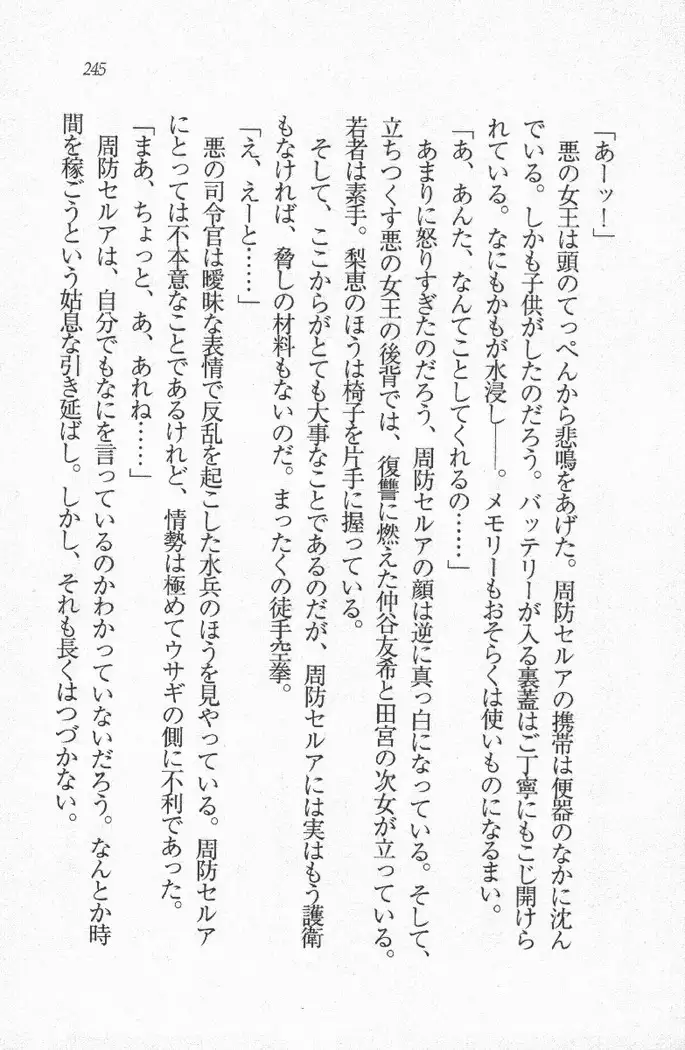 245
「あーッ！」
　悪の女王は頭のてっぺんから悲鳴をあげた。周防セルアの携帯は便器のなかに沈ん
でいる。しかも子供がしたのだろう。バッテリーが入る裏蓋はご丁寧にもこじ開けら
れている。なにもかもが水浸し――。メモリーもおそらくは使いものになるまい。
「あ、あんた、なんてことしてくれるの……」
　あまりに怒りすぎたのだろう、周防セルアの顔は逆に真っ白になっている。そして、
立ちつくす悪の女王の後背では、復讐に燃えた仲谷友希と田宮の次女が立っている。
若者は素手。梨恵のほうは椅子を片手に握っている。
　そして、ここからがとても大事なことであるのだが、周防セルアには実はもう護衛
もなければ、脅しの材料もないのだ。まったくの徒手空拳。
「え、えーと……」
　悪の司令官は曖昧な表情で反乱を起こした水兵のほうを見やっている。周防セルア
にとっては不本意なことであるけれど、情勢は極めてウサギの側に不利であった。
「まあ、ちょっと、あ、あれね……」
　周防セルアは、自分でもなにを言っているのかわかっていないだろう。なんとか時
間を稼ごうという姑息な引き延ばし。しかし、それも長くはつづかない。